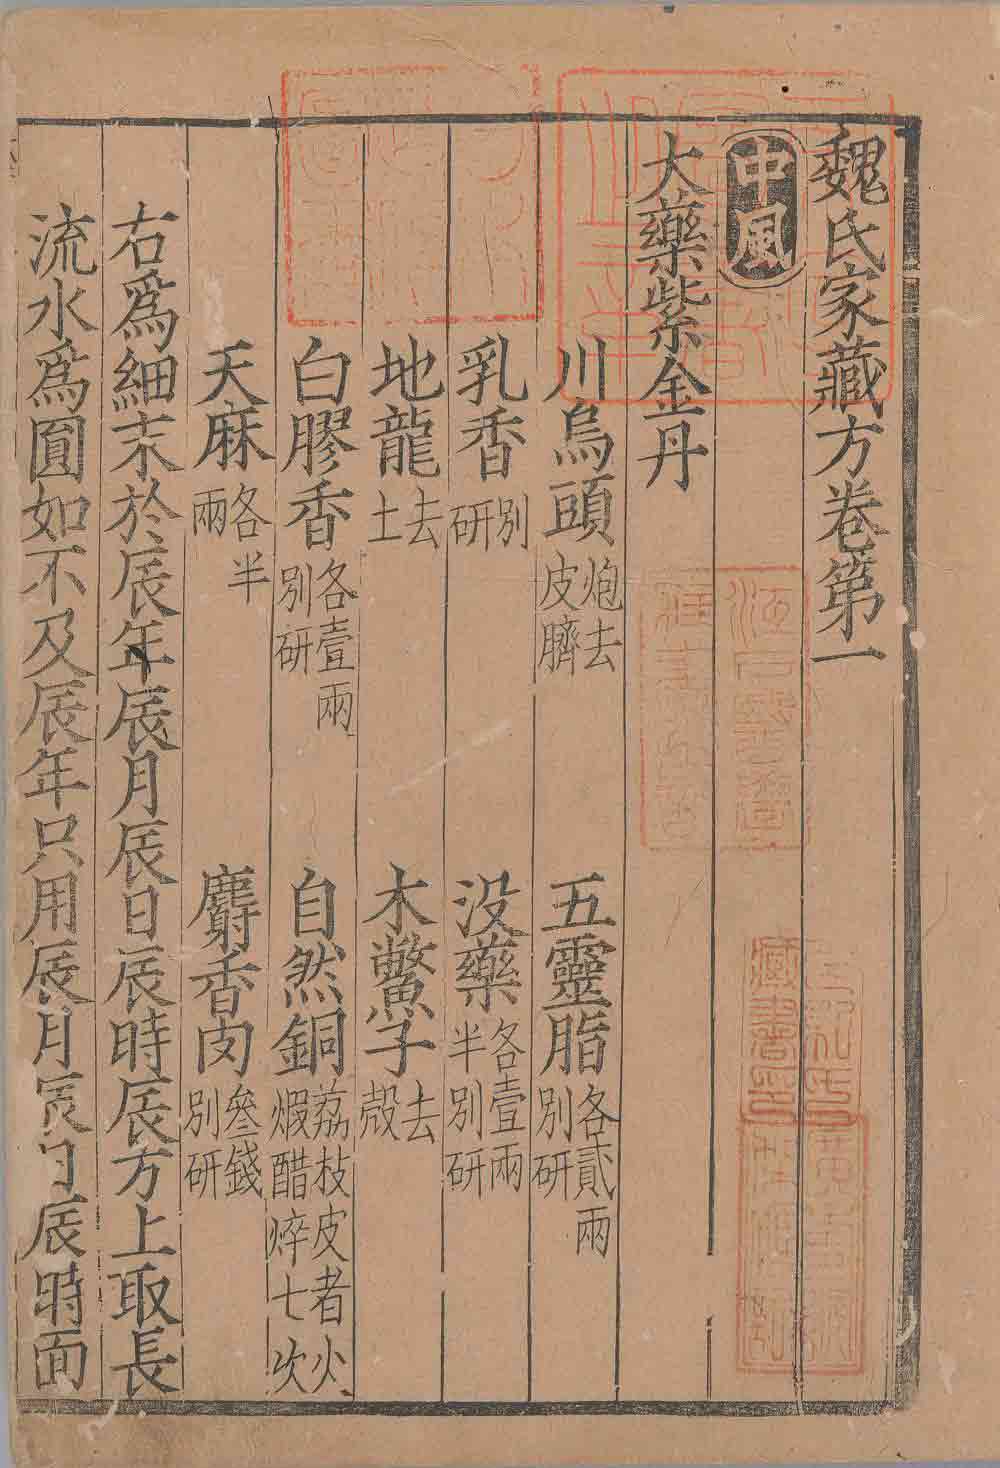 魏氏家藏方卷第一
中風
大藥紫金丹
川烏頭炮去皮臍 五靈脂各貳兩別研
乳香別研 没藥各壹兩半別研
地龍去土 木鱉子去殼
白膠香各壹兩別研 自然銅荔枝皮者火煅醋焠七次
天麻各半兩 麝香肉叄錢別研
右爲細末於辰年辰月辰日辰時辰方上取長
流水爲圓如不及辰年只用辰月辰日辰時面